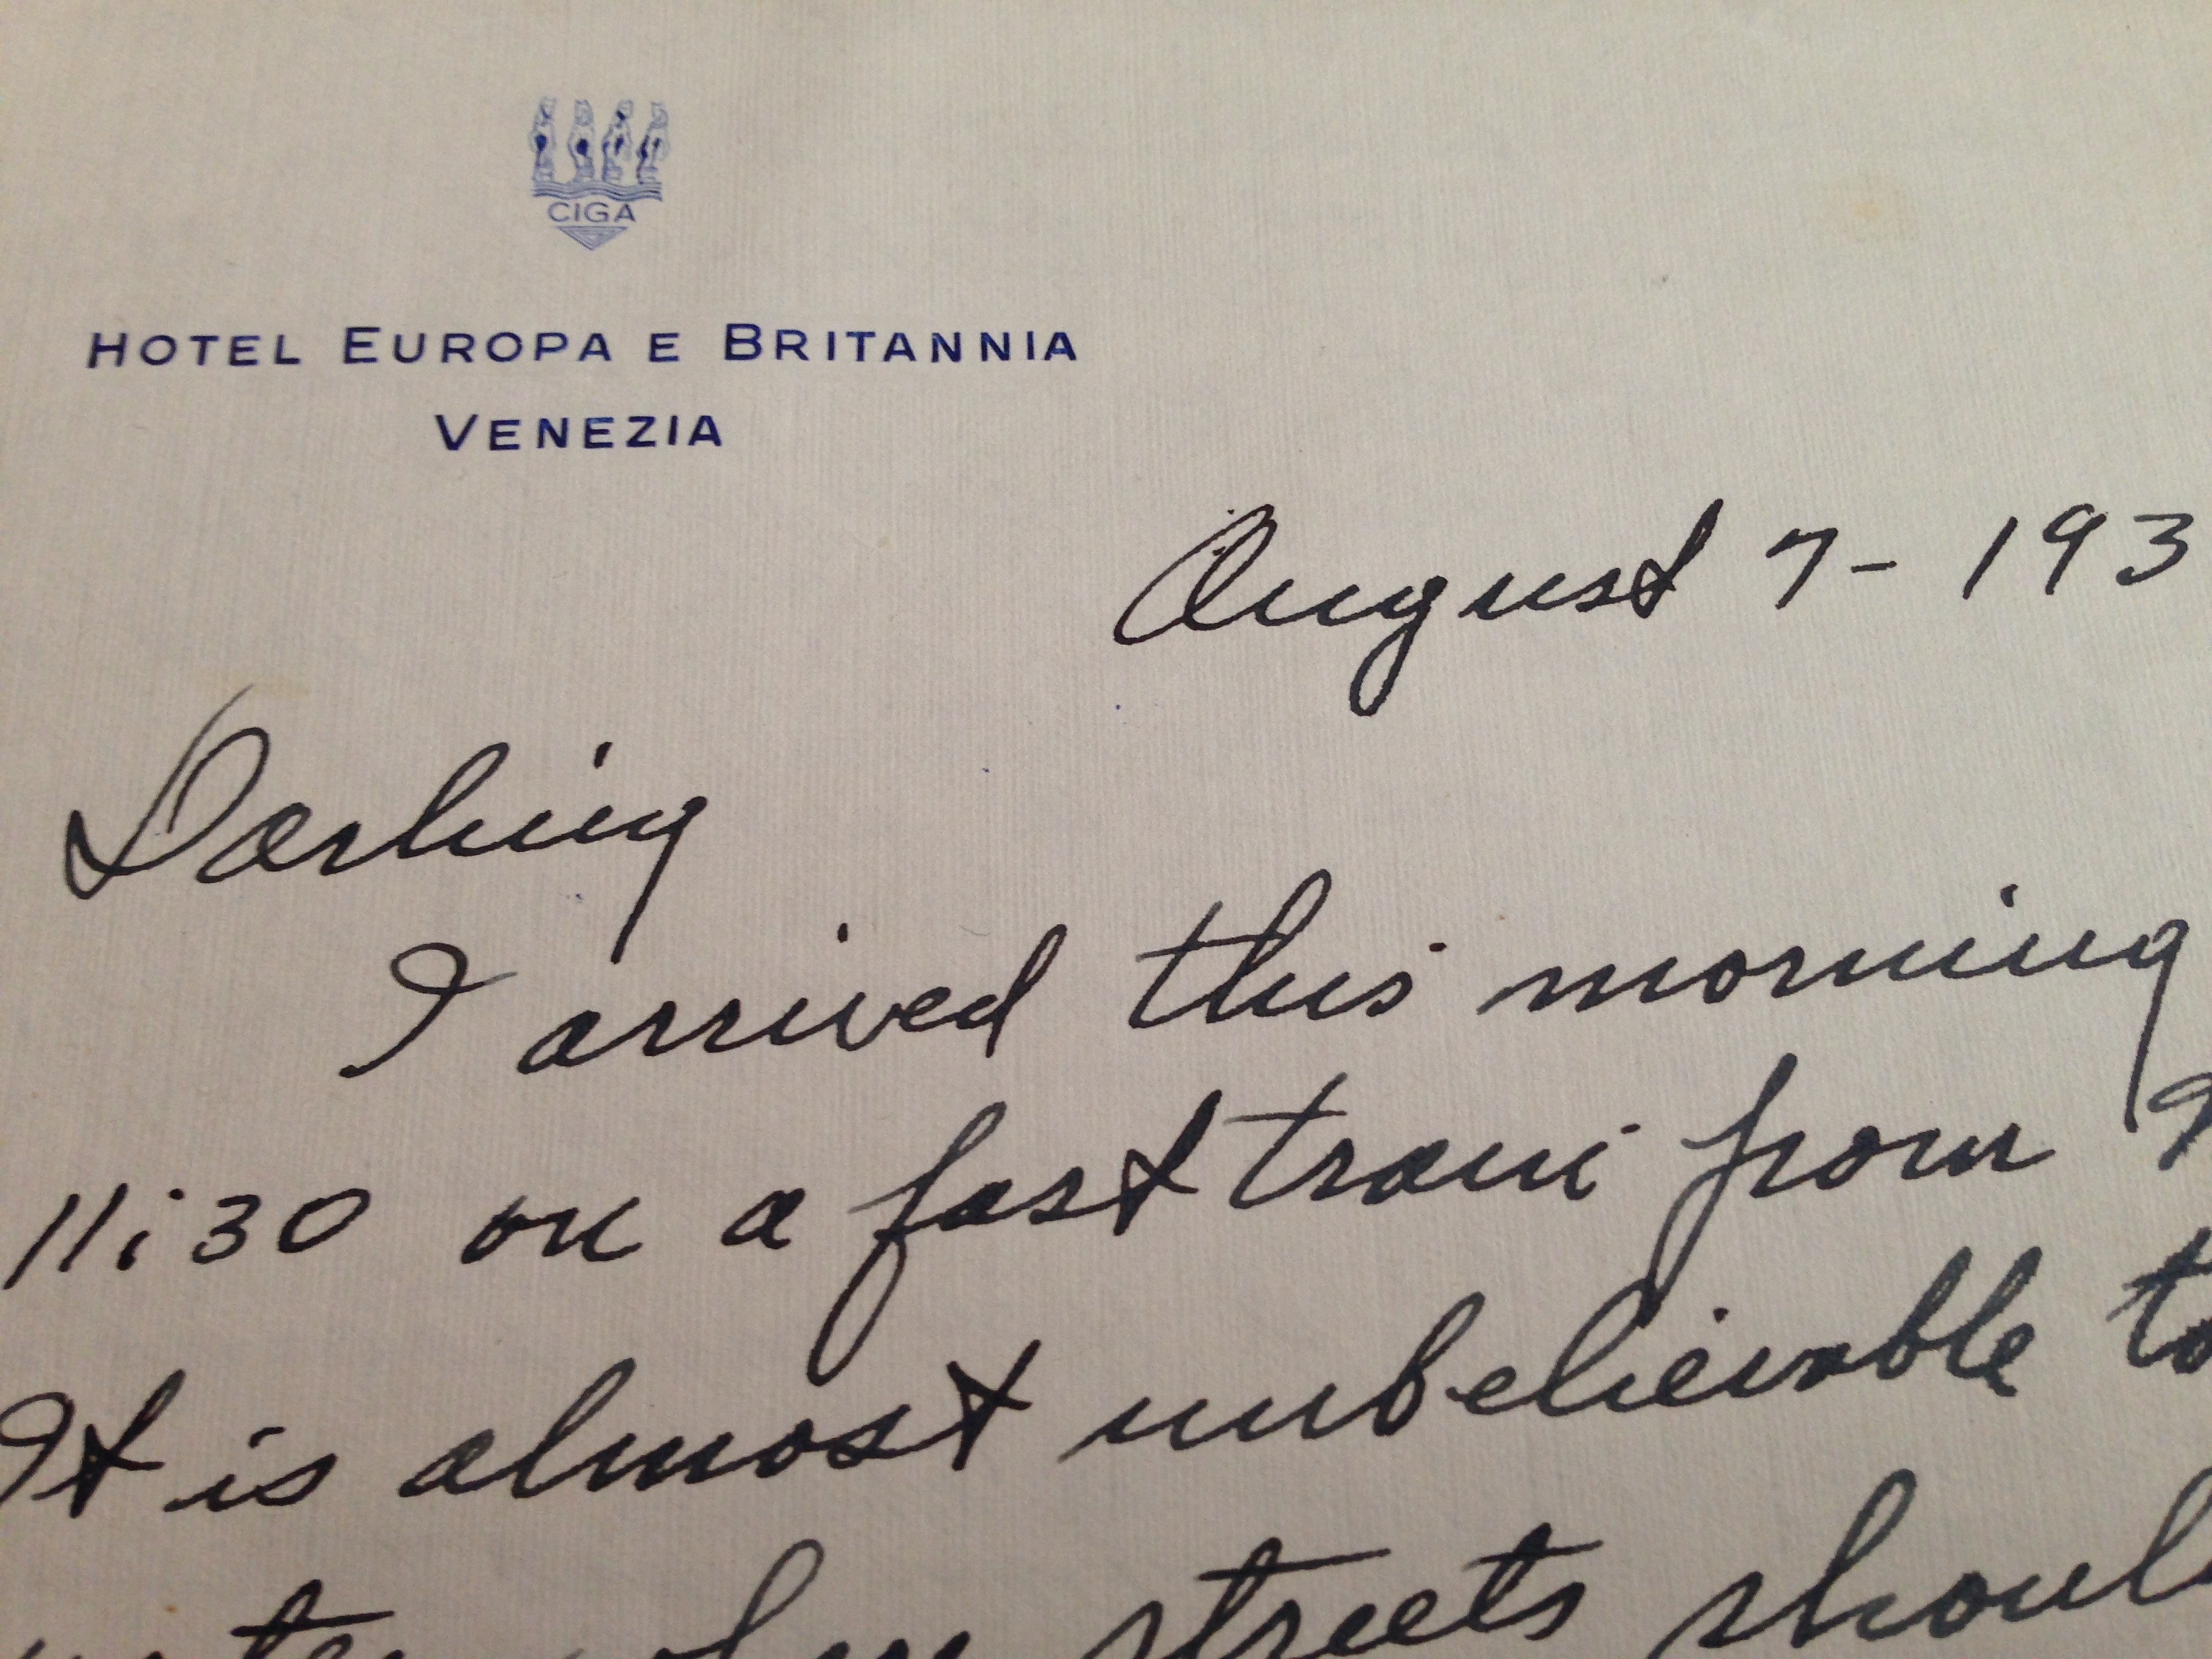 CIGA
HOTEL EUROPA E BRITANNIA
VENEZIA
August 7- 193
Darling
I arrived this morning
11:30 on a fast train from
It is almost unbelievable to
water where streets should